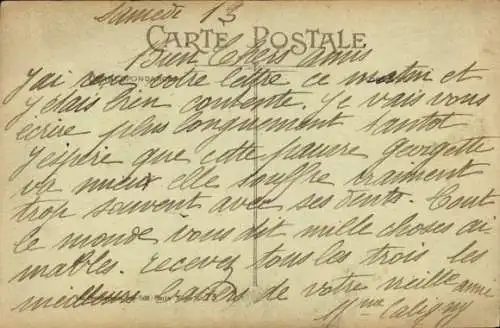 Samedi 13
CARTE POSTALE
Bien Chers amis
CORRESPONDANCE
J'ai reçu votre lettre ce matin et
j'étais bien contente. Je vais vous
écrire plus longuement tantot
J'espère que cette pauvre Georgette
va mieux elle souffre vraiment
trop souvent avec ses dents. Tout
le monde vous dit mille choses ai
mables. recevez tous les trois les
meilleurs baisers de votre vieille amie
Mme Caligny